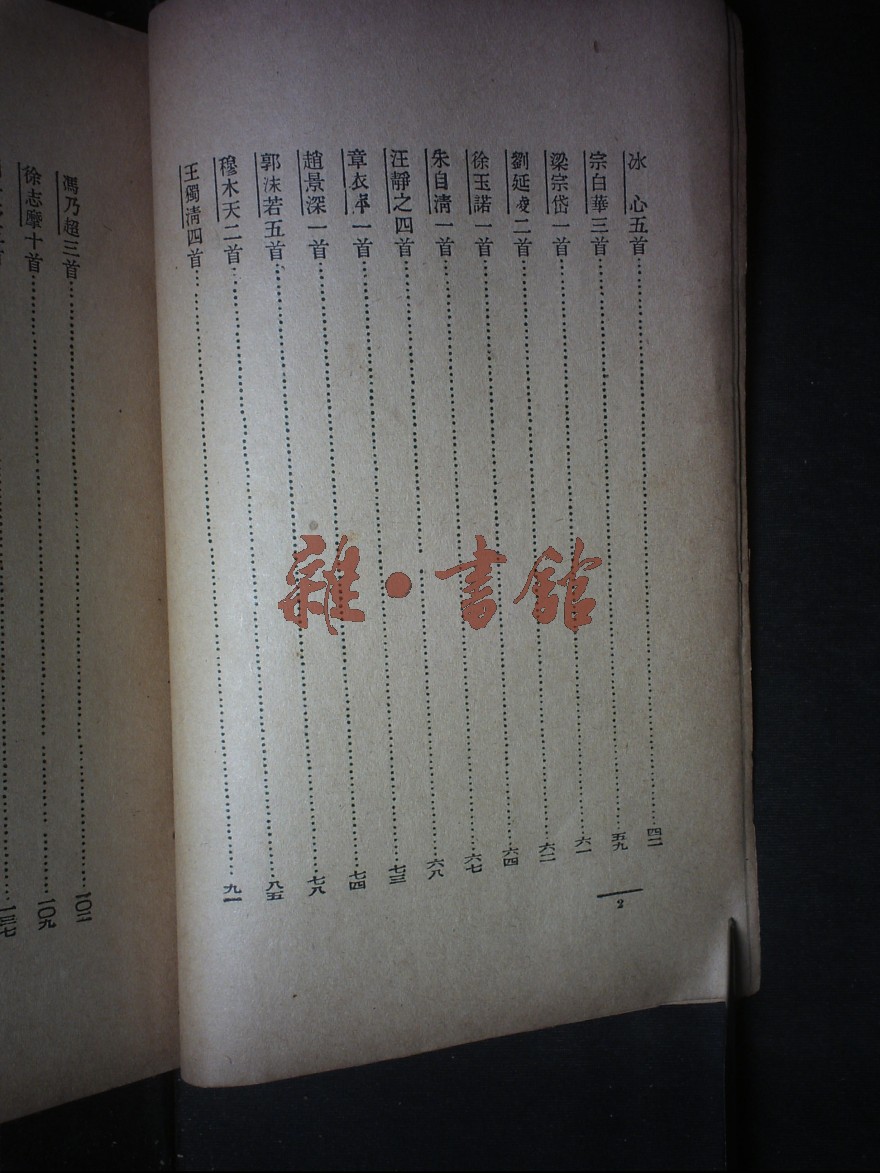 冰　心五首……四二
宗白華三首……五九
梁宗岱一首……六一
劉延夌二首……六二
徐玉諾一首……六四
朱自清一首……六七
汪靜之四首……六八
章衣萍一首……七三
趙景深一首……七四
郭沫若五首……七八
穆木天二首……八五
王獨清四首……九一
2
馮乃超三首……一〇二
徐志摩十首……一〇九
首……一三七
雜·書館